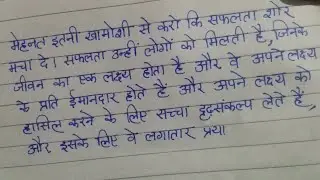 मेहनत इतनी खामोशी से करो कि सफलता शोर
मचा दे। सफलता उन्हीं लोगों को मिलती है, जिनके
जीवन का एक लक्ष्य होता है और वे अपने लक्ष्य
के प्रति ईमानदार होते हैं और अपने लक्ष्य को
हासिल करने के लिए सच्चा दृढ़संकल्प लेते हैं,
और इसके लिए वे लगातार प्रया